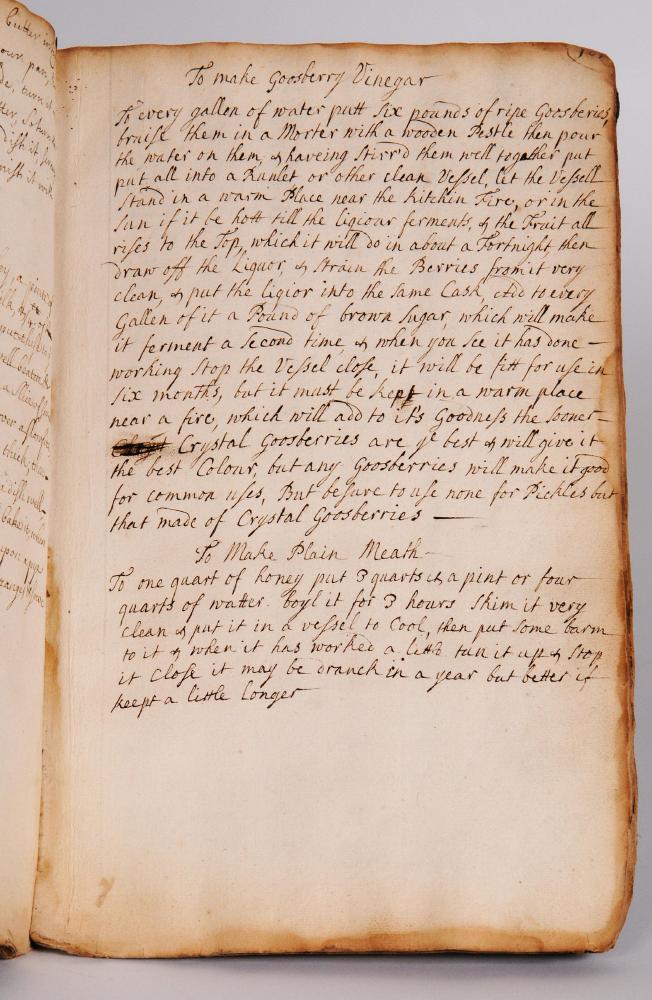 To make Goosberry Vinegar
To every gallen of water putt Six pounds of ripe Goosberies,
bruise them in a Morter with a wooden Pestle then pour
the water on them, & haveing Stirr'd them well together put
put all into a Runlet or other clean Vessel, let the Vessell
Stand in a warm Place near the kitchin Fire, or in the
Sun if it be hott till the ligiour ferments, & the Fruit all
rises to the Top, which it will do in about a Fortnight, then
draw off the Liquor, & Strain the Berries from it very
clean, & put the ligior into the Same Cask, Add to every
Gallen of it a Pound of brown Sugar, which will make
it ferment a Second time, & when you See it has done —
working Stop the Vessel close, it will be fitt for use in
Six months, but it must be kept in a warm place
near a fire, which will add to it's Goodness the Sooner —
Crystal Goosberries are ye best & will give it
the best Colour, but any Goosberries will make it good
for common uses, But be sure to use none for Pickles but
that made of Crystal Goosberries —
To Make Plain Meath —
To one quart of honey put 3 quarts & a pint or four
quarts of watter. boyl it for 3 hours Skim it very
clean & put it in a vessel to Cool, then put Some barm
to it & when it has worked a little tun it up & Stop
it Close it may be dranck in a year but better if
keept a little longer